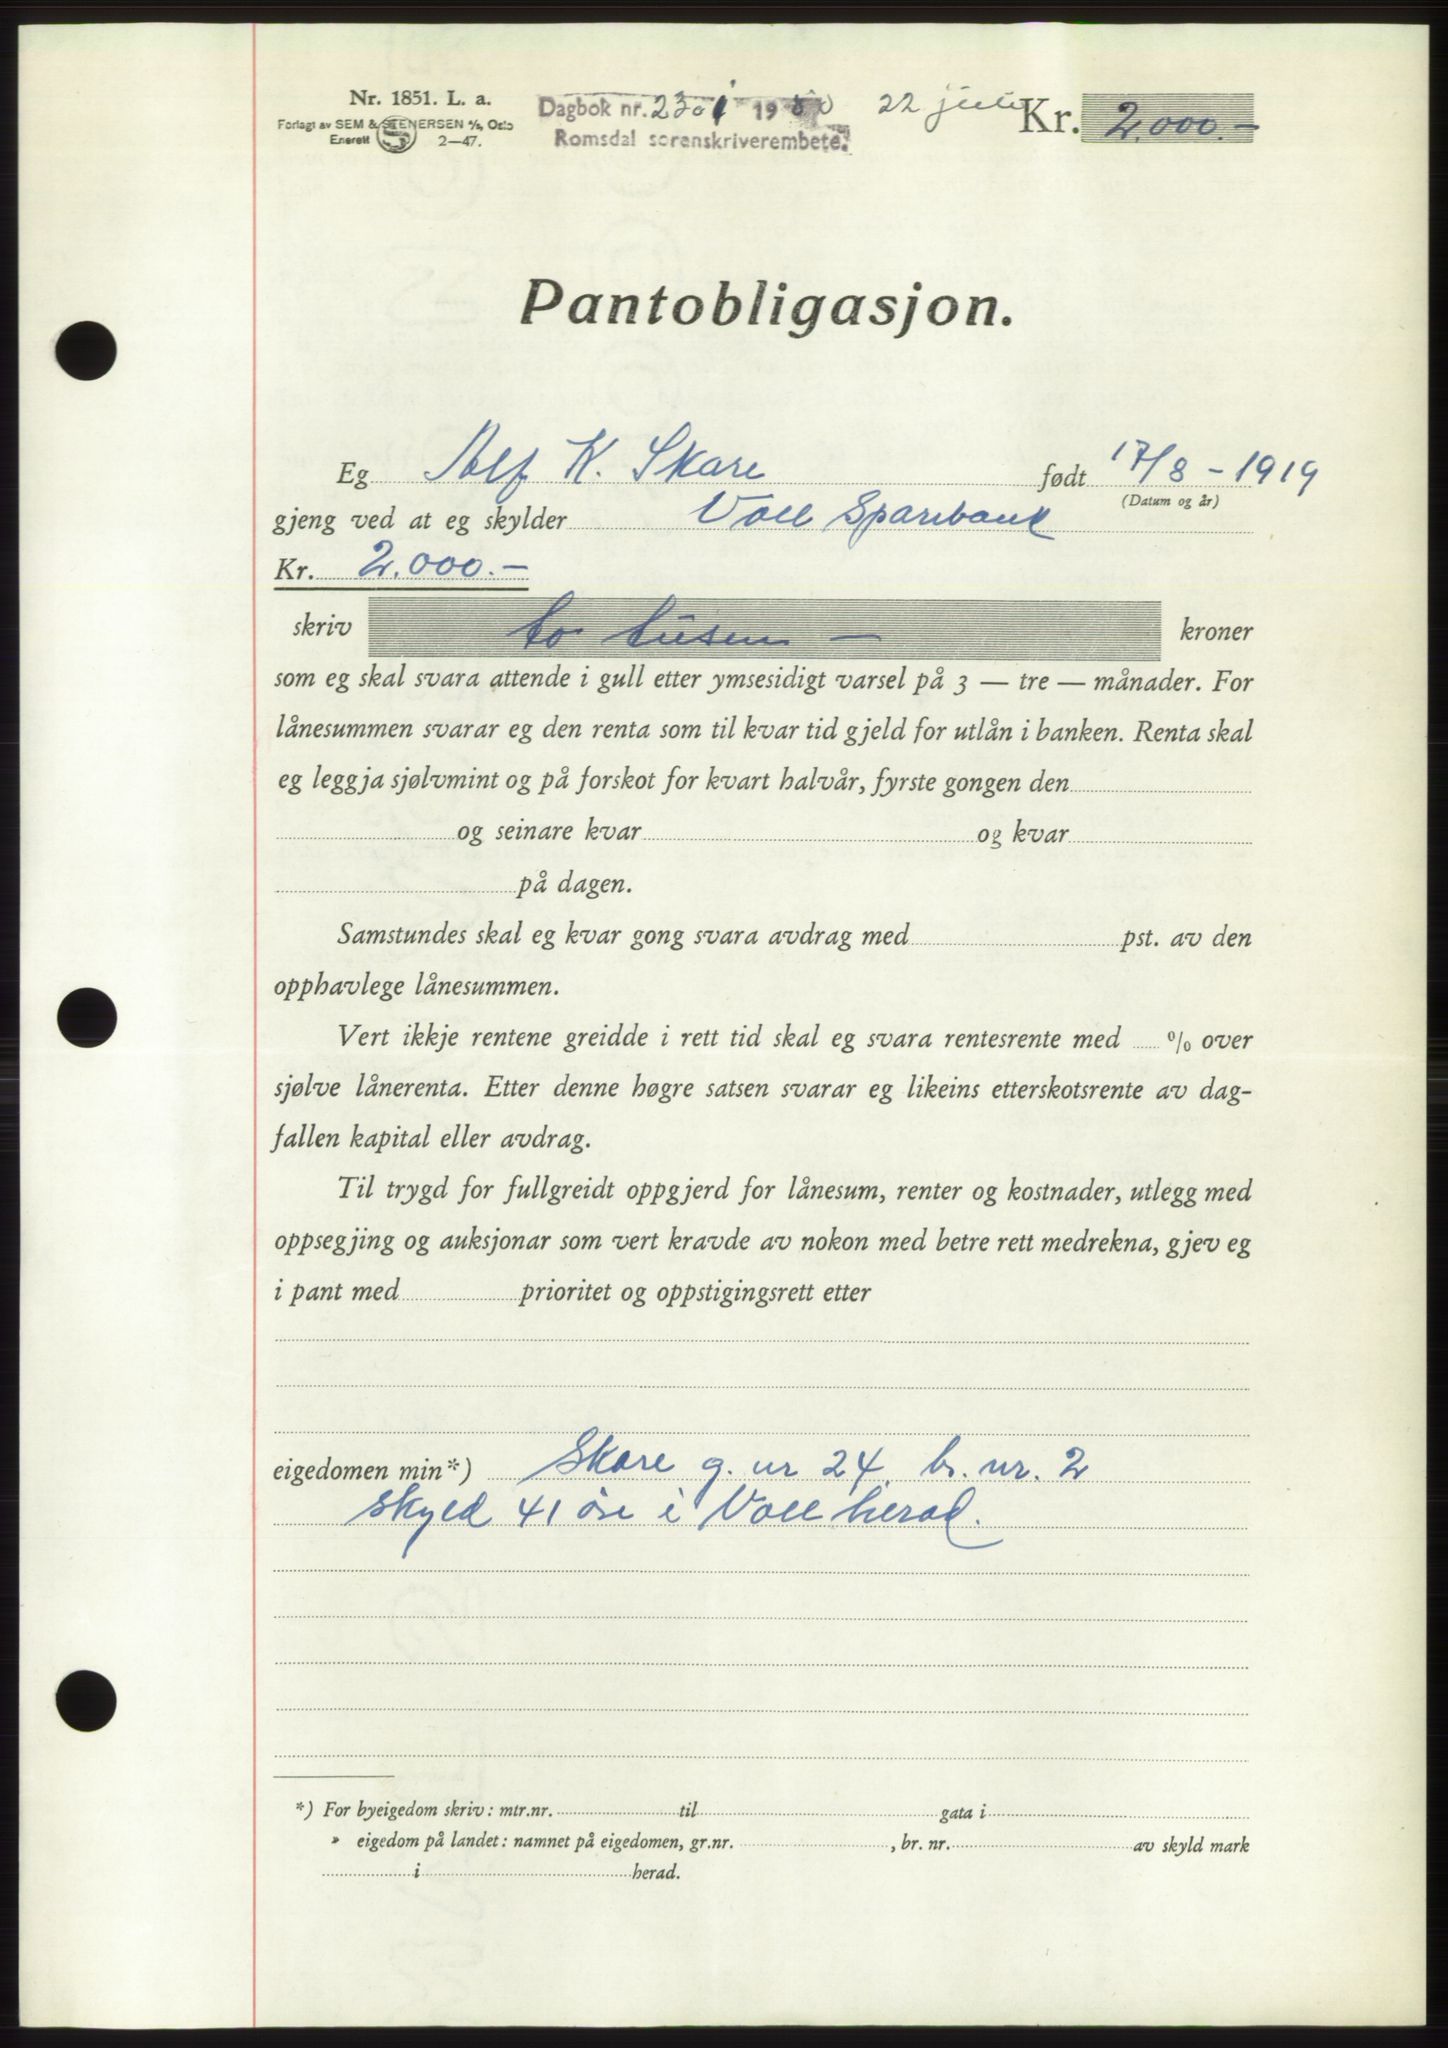 Nr. 1851. L. a.
Forlagt av SEM & STENERSEN A/S, Oslo
Enerett 2—47.
Dagbok nr. 2301 1950 22 juli
Romsdal sorenskriverembete.
Kr. 2.000.-
Pantobligasjon.
Eg Alf K. Skare født 17/8 - 1919
(Datum og år)
gjeng ved at eg skylder Voll Sparebank
Kr. 2.000.-
skriv to tusen — kroner
som eg skal svara attende i gull etter ymsesidigt varsel på 3 — tre — månader. For
lånesummen svarar eg den renta som til kvar tid gjeld for utlån i banken. Renta skal
eg leggja sjølvmint og på forskot for kvart halvår, fyrste gongen den
og seinare kvar og kvar
på dagen.
Samstundes skal eg kvar gong svara avdrag med pst. av den
opphavlege lånesummen.
Vert ikkje rentene greidde i rett tid skal eg svara rentesrente med % over
sjølve lånerenta. Etter denne høgre satsen svarar eg likeins etterskotsrente av dag-
fallen kapital eller avdrag.
Til trygd for fullgreidt oppgjerd for lånesum, renter og kostnader, utlegg med
oppsegjing og auksjonar som vert kravde av nokon med betre rett medrekna, gjev eg
i pant med prioritet og oppstigingsrett etter
eigedomen min*) Skare g. nr 24, br. nr. 2
skyld 41 øre i Voll herad.
*) For byeigedom skriv: mtr.nr. til gata i
» eigedom på landet: namnet på eigedomen, gr.nr. , br. nr. av skyld mark
i herad.